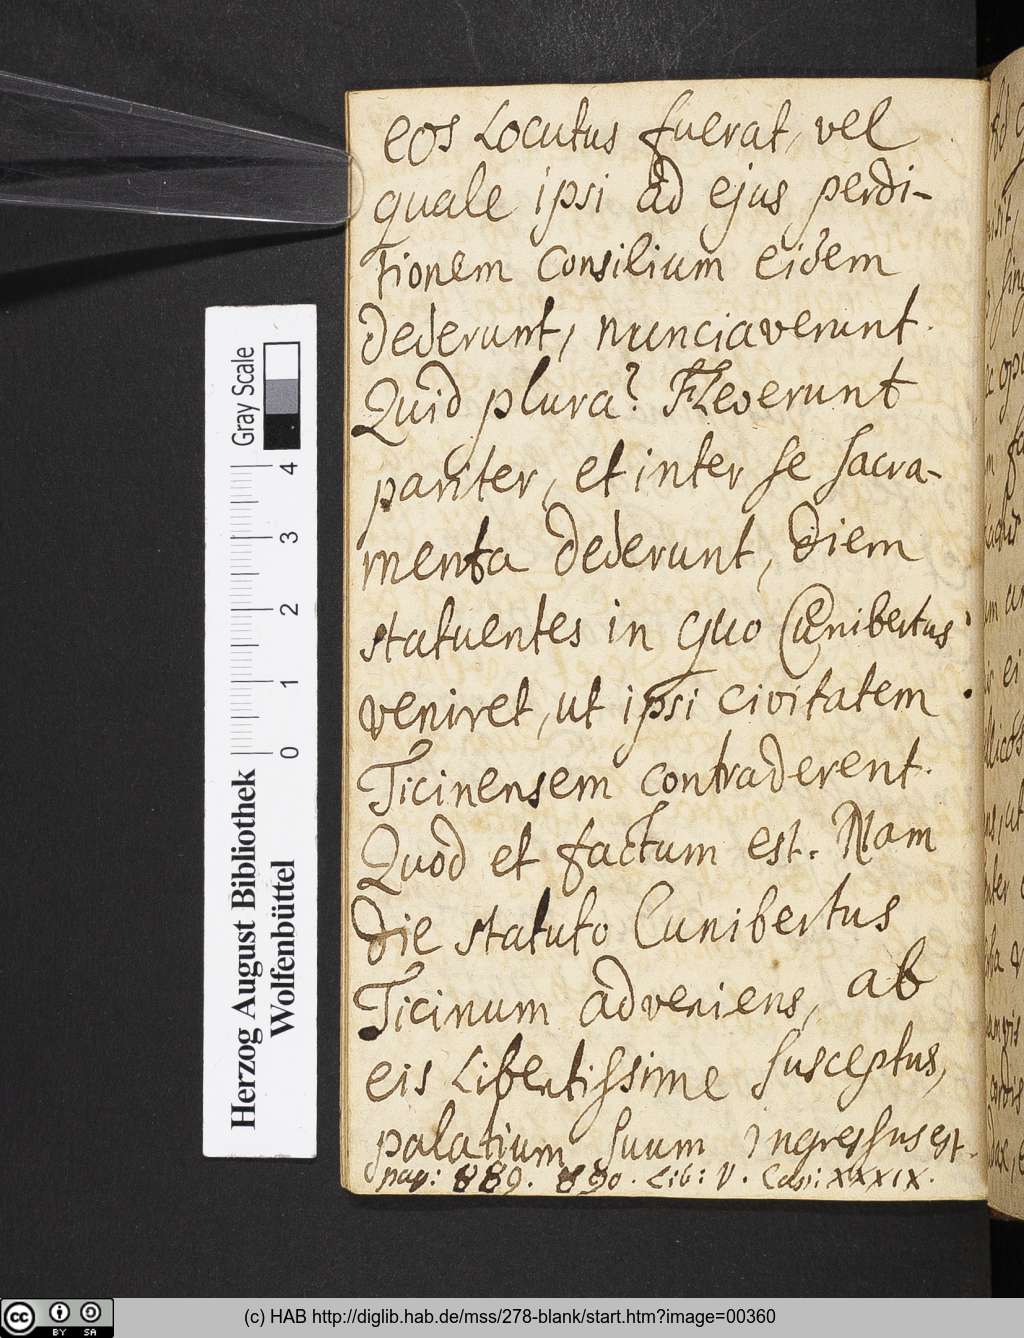 eos Locutus fuerat, vel
quale ipsi ad ejus perdi-
tionem Consilium eidem
dederunt, nunciaverunt.
Quid plura? Fleverunt
pariter, et inter se sacra-
menta dederunt, diem
statuentes in quo Cunibertus
veniret, ut ipsi civitatem
Ticinensem contraderent.
Quod et factum est. Nam
die statuto Cunibertus
Ticinum adveniens, ab
eis Libentissime susceptus,
palatium suum ingressus est.
pag: 889. 890. Lib: V. Cap: XXXIX.
Gray Scale
4
3
2
1
0
Herzog August Bibliothek
Wolfenbüttel
cc BY SA
(c) HAB http://diglib.hab.de/mss/278-blank/start.htm?image=00360